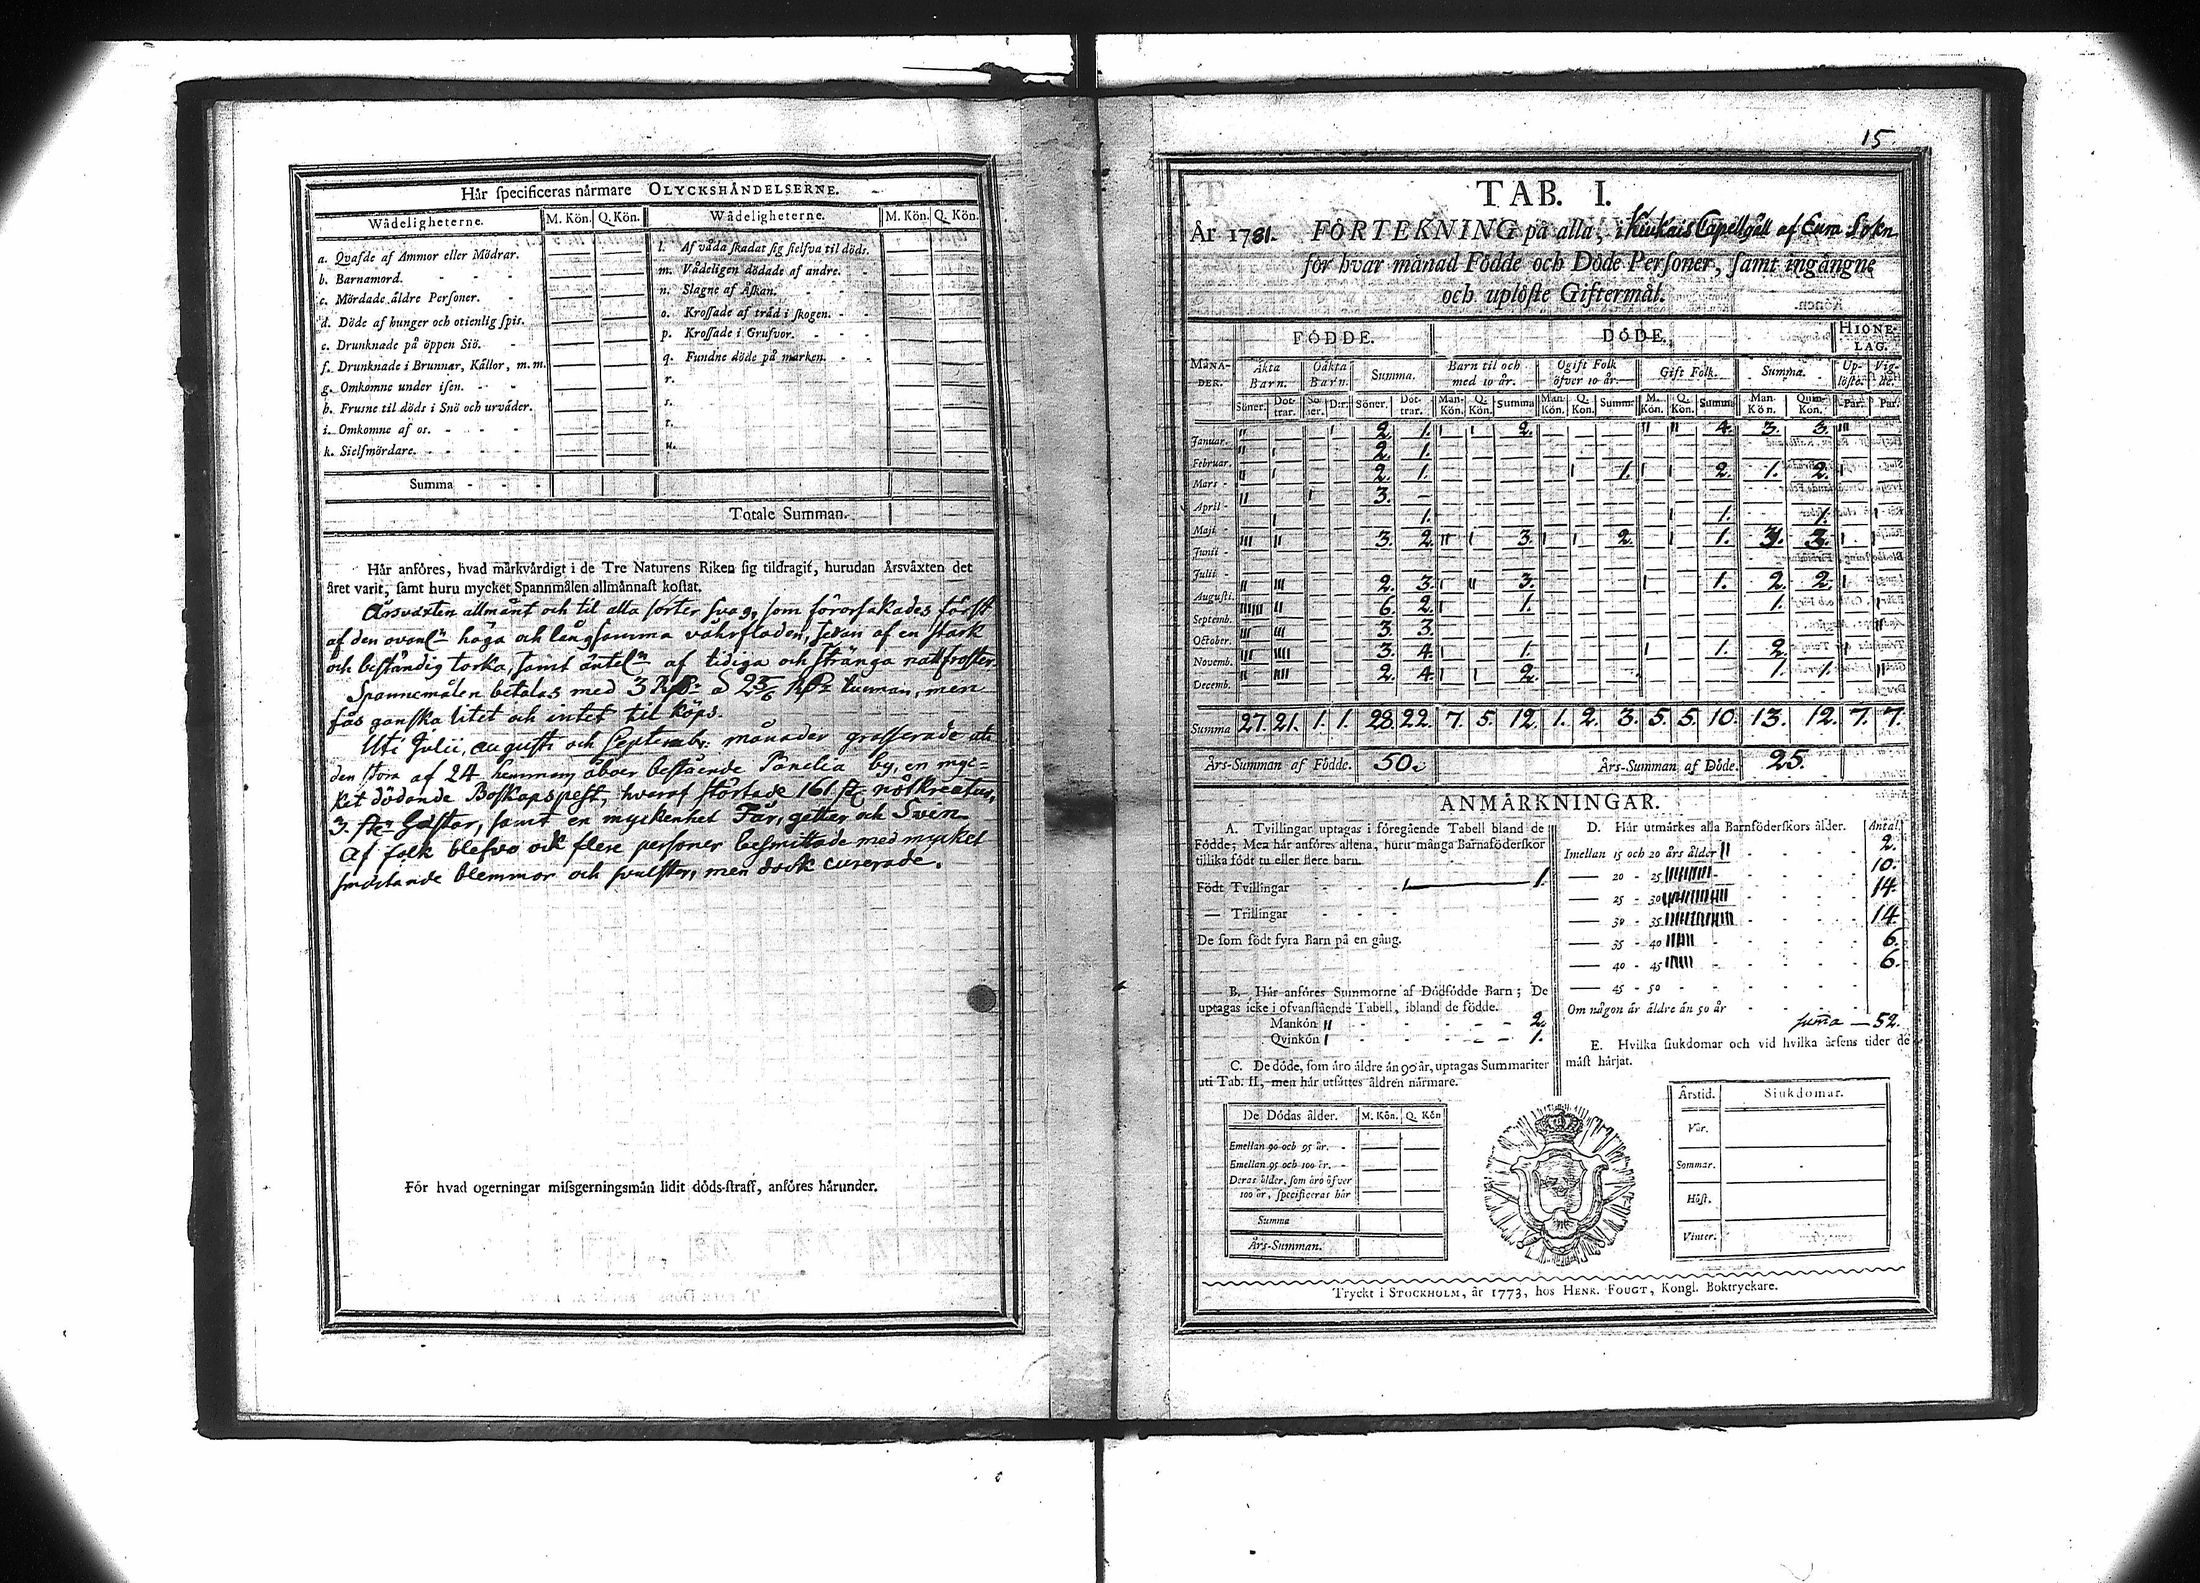 Här specificeras närmare OLYCKSHÄNDELSERNE.
Wådeligheterne. M. Kön. Q. Kön. Wådeligheterne. M. Kön. Q. Kön.
a. Qvafde af Ammor eller Mödrar.
b. Barnamord.
c. Mördade äldre Personer.
d. Döde af hunger och otienlig spis.
e. Drunknade på öppen Siö.
f. Drunknade i Brunnar, Källor, m. m.
g. Omkomne under isen.
h. Frusne til döds i Snö och urväder.
i. Omkomne af os.
k. Sielfmördare.
l. Af våda skadat sig sielfva til döds.
m. Vådeligen dödade af andre.
n. Slagne af Åskan.
o. Krossade af träd i skogen.
p. Krossade i Grufvor.
q. Fundne döde på marken.
r.
s.
t.
u.
Summa
Totale Summan.
Här anföres, hvad märkvärdigt i de Tre Naturens Riken sig tildragit, hurudan Årsväxten det
året varit, samt huru mycket Spannmålen allmännast kostat.
Årsväxten allmänt och til alla sorter svag, som förorsakades först
af den ovanl:n höga och långsamma våhrfloden, sedan af en stark
och beständig torka, samt äntel:n af tidiga och stränga nattfroster.
Spannemålen betalas med 3 R a 2 5/6 R tunnan, men
fås ganska litet och intet til köps.
Uti Julii, augusti och Septemb: månader grasserade uti
den stora af 24 hemman åboer bestående Panelia by, en myc=
ket dödande Boskapspest, hvaraf störtade 161 st nötkreatur,
3. st Hästar, samt en myckenhet Får, getter och Svin.
Af folk blefvo ock flere personer besmittade med mycket
smärtande blemmor och svulster, men dock curerade.
För hvad ogerningar missgerningsmän lidit döds-straff, anföres härunder.
15.
TAB. I.
År 1781. FÖRTEKNING på alla, i Kiukais Capellgäll af Eura Sokn
för hvar månad Födde och Döde Personer, samt ingångne
och uplöste Giftermål.
MÅNA-DER. FÖDDE. DÖDE. HIONE-LAG.
Äkta Barn. Oäkta Barn. Summa. Barn til och med 10 år. Ogift Folk öfver 10 år. Gift Folk. Summa. Up-löste. Vig-de.
Söner. Döt-trar. Sö-ner. D:r Söner. Döt-trar. Man-Kön. Q. Kön. Summa Man-Kön. Q. Kön. Summa M. Kön. Q. Kön. Summa Man-Kön. Quin-Kön. Par. Par.
Januar. 2. 1. 2. 4. 3. 3.
Februar. 2. 1.
Mars 2. 1. 1. 2. 1. 2.
April 3.
Maji 1. 1. 1.
Junii 3. 2. 3. 2. 1. 3. 3.
Julii
Augusti. 2. 3. 3. 1. 2. 2.
Septemb. 6. 2. 1. 1.
October. 3. 3.
Novemb. 3. 4. 1. 1. 2.
Decemb. 2. 4. 2. 1. 1.
Summa 27. 21. 1. 1. 28. 22. 7. 5. 12. 1. 2. 3. 5. 5. 10. 13. 12. 7. 7.
Års-Summan af Födde. 50. Års-Summan af Döde. 25.
ANMÄRKNINGAR.
A. Tvillingar uptagas i föregående Tabell bland de
Födde; Men här anföres allena, huru många Barnaföderskor
tillika födt tu eller flere barn.
Födt Tvillingar 1.
— Trillingar
De som födt fyra Barn på en gång.
B. Här anföres Summorne af Dödfödde Barn; De
uptagas icke i ofvanstående Tabell, ibland de födde.
Mankön 2.
Qvinkön 1.
C. De döde, som äro äldre än 90 år, uptagas Summariter
uti Tab. II, men här utsättes åldren närmare.
De Dödas ålder. M. Kön. Q. Kön
Emellan 90 och 95 år.
Emellan 95 och 100 år.
Deras ålder, som äro öfver
100 år, specificeras här
Summa
Års-Summan.
D. Här utmärkes alla Barnföderskors ålder. Antal.
Imellan 15 och 20 års ålder 2.
— 20 - 25 10.
— 25 - 30 14.
— 30 - 35 14.
— 35 - 40 6.
— 40 - 45 6.
— 45 - 50
Om någon är äldre än 50 år
suma — 52.
E. Hvilka siukdomar och vid hvilka årsens tider de
mäst härjat.
Årstid. Siukdomar.
Vår.
Sommar.
Höst.
Vinter.
Tryckt i STOCKHOLM, år 1773, hos HENR. FOUGT, Kongl. Boktryckare.